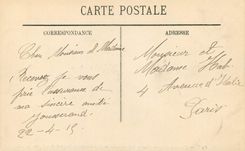 CARTE POSTALE
CORRESPONDANCE
Cher Monsieur et Madame
Recevez je vous
prie l'assurance de
ma sincère amitié
22-4-15
ADRESSE
Monsieur et
Madame
4 Avenue d'Italie
Paris